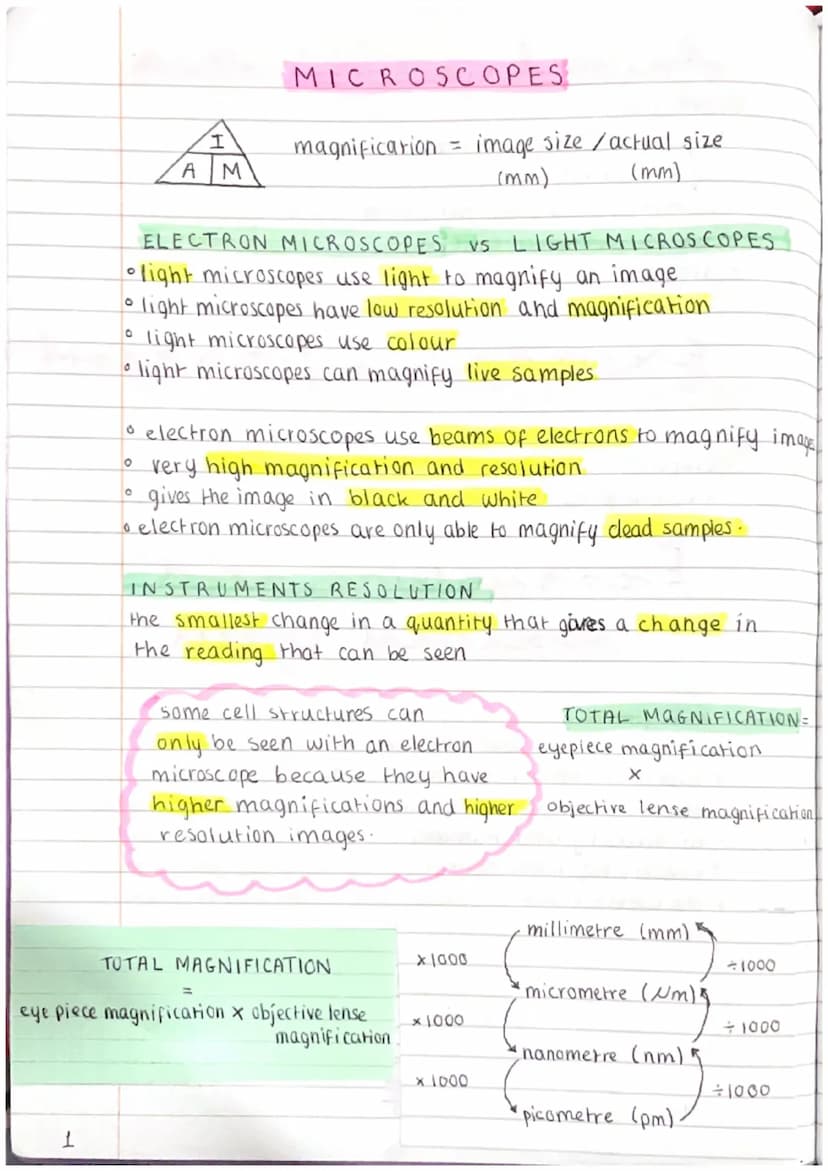 MICROSCOPES
I
A M
magnification = image size / actual size
(mm) (mm)
ELECTRON MICROSCOPES vs LIGHT MICROSCOPES
light microscopes use light to magnify an image
light microscopes have low resolution and magnification
light microscopes use colour
light microscopes can magnify live samples
electron microscopes use beams of electrons to magnify image
very high magnification and resolution
gives the image in black and white
electron microscopes are only able to magnify dead samples.
INSTRUMENTS RESOLUTION
the smallest change in a quantity that gives a change in
the reading that can be seen
some cell structures can
only be seen with an electron
microscope because they have
higher magnifications and higher
resolution images.
TOTAL MAGNIFICATION=
eyepiece magnification
×
objective lense magnification
TOTAL MAGNIFICATION
=
eye piece magnification × objective lense
magnification
millimetre (mm)
×1000 ÷1000
micrometre (μm)
×1000 ÷1000
nanometre (nm)
×1000 ÷1000
picometre (pm)
1